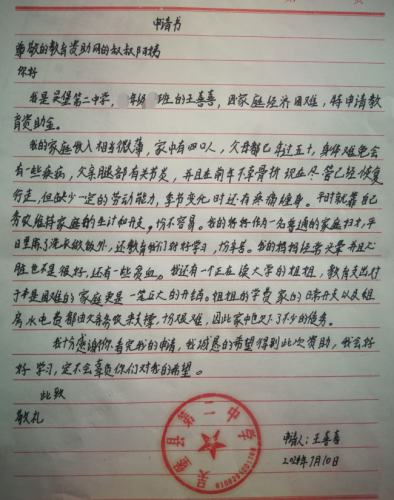 申请书
尊敬的教育资助网的叔叔阿姨
你好
我是吴堡第二中学, 年级 班的王喜喜, 因家庭经济困难, 特申请教
育资助金。
我的家庭收入相当微薄, 家中有四口人, 父母都已年过五十, 身体难免会
有一些疾病, 父亲腿部有关节炎, 并且在前年不幸骨折 现在尽管已经恢复
行走, 但缺少一定的劳动能力, 季节变化时还有疼痛缠身。平时就靠自己
务农维持家庭的生计和开支, 十分不容易。我的妈妈作为一名普通的家庭妇女, 平
日里除了洗衣做饭外, 还教育我们好好学习, 十分辛苦。我的妈妈经常头晕并且心
脏也不是很好, 还有一些贫血。我还有一个正在读大学的姐姐, 教育支出对
于本是困难的家庭更是一笔巨大的开销。姐姐的学费 家里的日常开支以及租
房水电费都由父亲务农来支撑, 十分艰难, 因此家中也欠下了不少的债务。
我十分感谢你看完我的申请, 我诚恳的希望得到此次资助, 我会好
好学习, 定不会辜负你们对我的希望。
此致
敬礼
吴堡县第二中学
申请人:王喜喜
7月10日